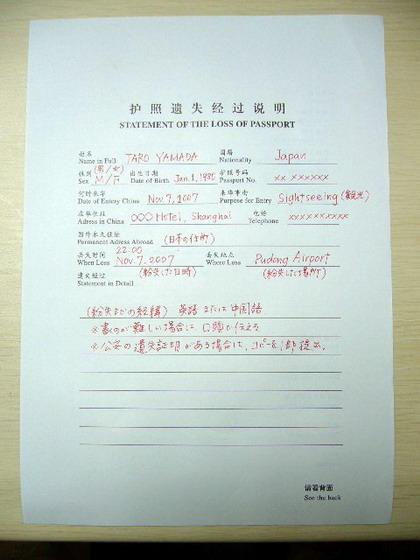 护照遗失经过说明
STATEMENT OF THE LOSS OF PASSPORT
姓名 国籍
Name in Full TARO YAMADA Nationality Japan
性别 (男/女) 出生日期 护照号码
Sex M/F Date of Birth Jan.1,1980 Passport No. xx xxxxxx
何时来华 来华事由
Date of Entry China Nov.7,2007 Purpose for Entry Sightseeing (観光)
在华住址 电话
Adress in China ○○○ Hotel, Shanghai Telephone xxxxxxxxxx
国外永久住址
Permanent Adress Abroad (日本の住所)
丢失时间 22:00 丢失地点
When Loss Nov.7.2007 Where Loss Pudong Airport
遗失经过 (紛失した日時) (紛失した場所)
Statement in Detail
(紛失までの経緯) 英語または中国語
※書くのが難しい場合は、口頭で伝える
※公安の遺失証明がある場合は、コピーを1部提出。
请看背面
See the back